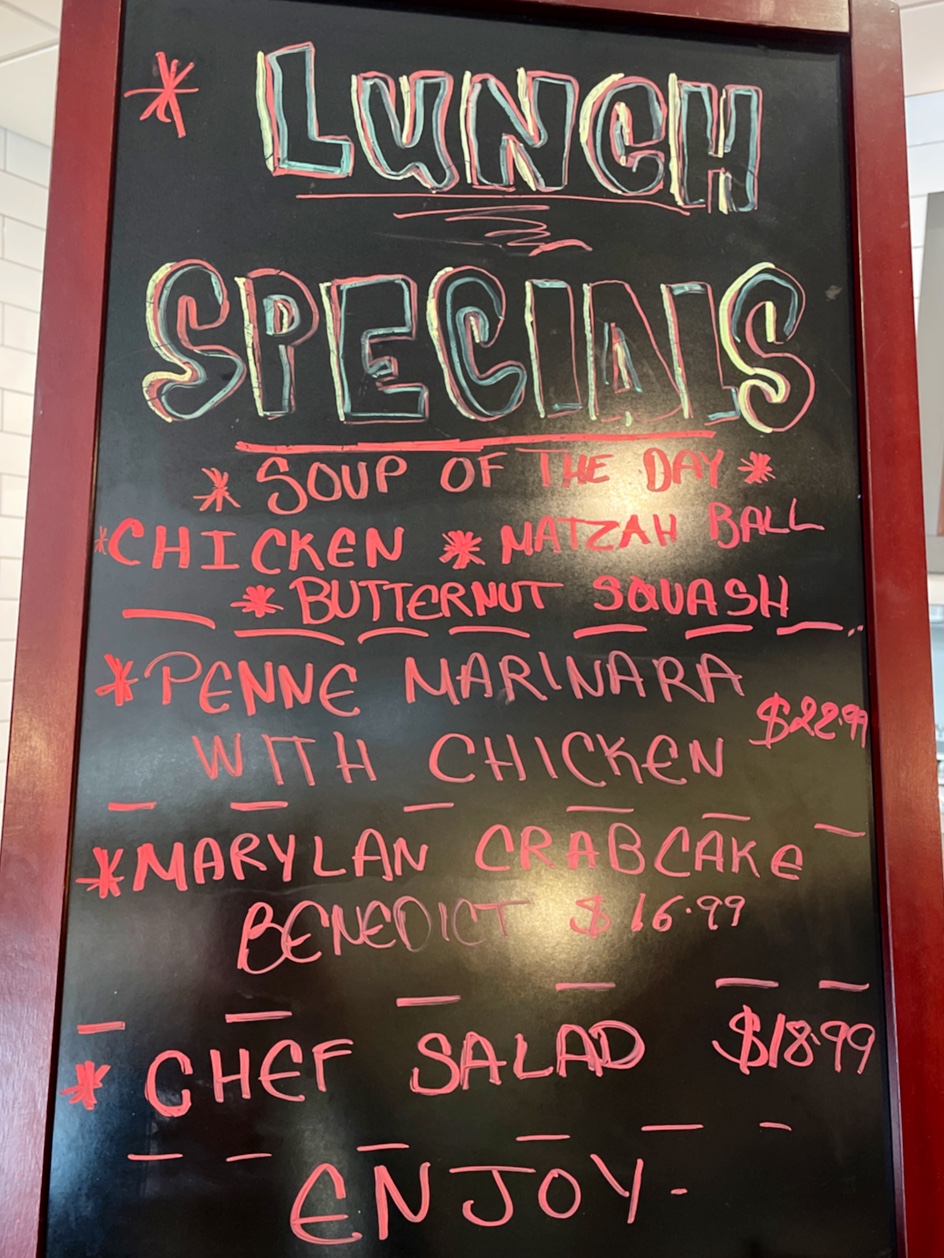 * LUNCH
SPECIALS
* SOUP OF THE DAY *
*CHICKEN * MATZAH BALL
* BUTTERNUT SQUASH
*PENNE MARINARA
$22.99
WITH CHICKEN
*MARYLAN CRABCAKE
BENEDICT $16.99
* CHEF SALAD $18.99
ENJOY-